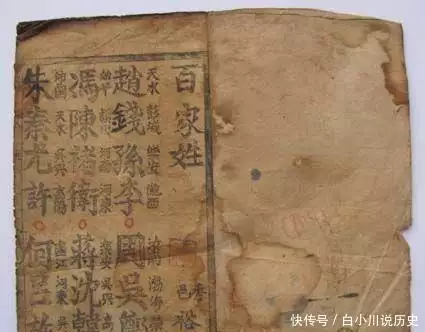 百家姓
天水 彭城 樂安 隴西 汝南 渤海
趙錢孫李周吳鄭
始平 潁川 河南 河東 樂安 吳興
馮陳褚衛蔣沈韓
沛國 天水 吳興 高陽 廬江 河東 吳興
朱秦尤許何呂
快传号 / 白小川说历史